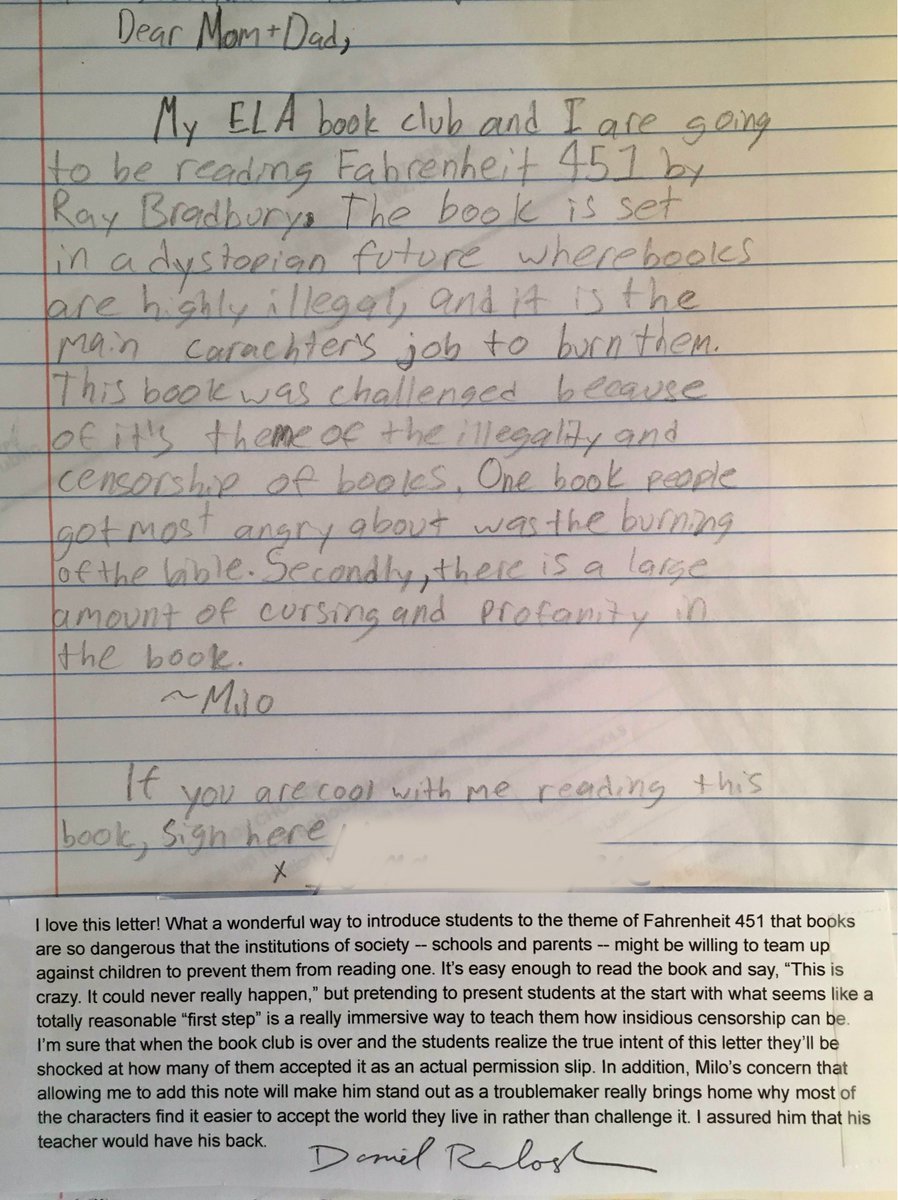 Dear Mom+Dad,
My ELA book club and I are going
to be reading Fahrenheit 451 by
Ray Bradbury. The book is set
in a dystopian future where books
are highly illegal, and it is the
main carachter's job to burn them.
This book was challenged because
of it's theme of the illegality and
censorship of books. One book people
got most angry about was the burning
of the bible. Secondly, there is a large
amount of cursing and profanity in
the book.
~Milo
If you are cool with me reading this
book, Sign here
x
I love this letter! What a wonderful way to introduce students to the theme of Fahrenheit 451 that books
are so dangerous that the institutions of society -- schools and parents -- might be willing to team up
against children to prevent them from reading one. It's easy enough to read the book and say, “This is
crazy. It could never really happen,” but pretending to present students at the start with what seems like a
totally reasonable “first step” is a really immersive way to teach them how insidious censorship can be.
I'm sure that when the book club is over and the students realize the true intent of this letter they'll be
shocked at how many of them accepted it as an actual permission slip. In addition, Milo's concern that
allowing me to add this note will make him stand out as a troublemaker really brings home why most of
the characters find it easier to accept the world they live in rather than challenge it. I assured him that his
teacher would have his back.
Daniel